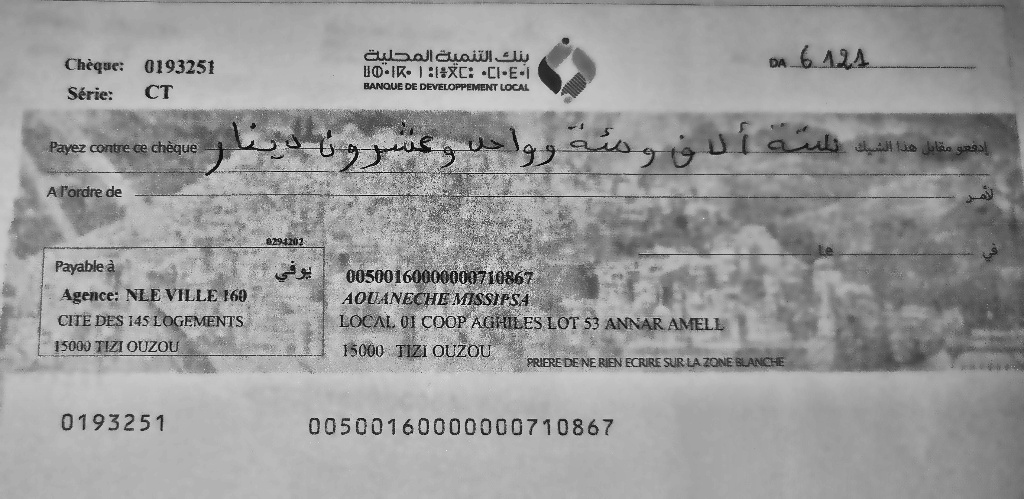 Chèque: 0193251
Série: CT
بنك التنمية المحلية
BANQUE DE DEVELOPPEMENT LOCAL
DA 6 121
Payez contre ce chèque ستة ألاف و مئة وواحد وعشرون دينار إدفعو مقابل هذا الشيك
A l'ordre de لأمر
Le في
0294202
Payable à يوفي
Agence: NLE VILLE 160
CITE DES 145 LOGEMENTS
15000 TIZI OUZOU
00500160000000710867
AOUANECHE MISSIPSA
LOCAL 01 COOP AGHILES LOT 53 ANNAR AMELL
15000 TIZI OUZOU
PRIERE DE NE RIEN ECRIRE SUR LA ZONE BLANCHE
0193251 00500160000000710867